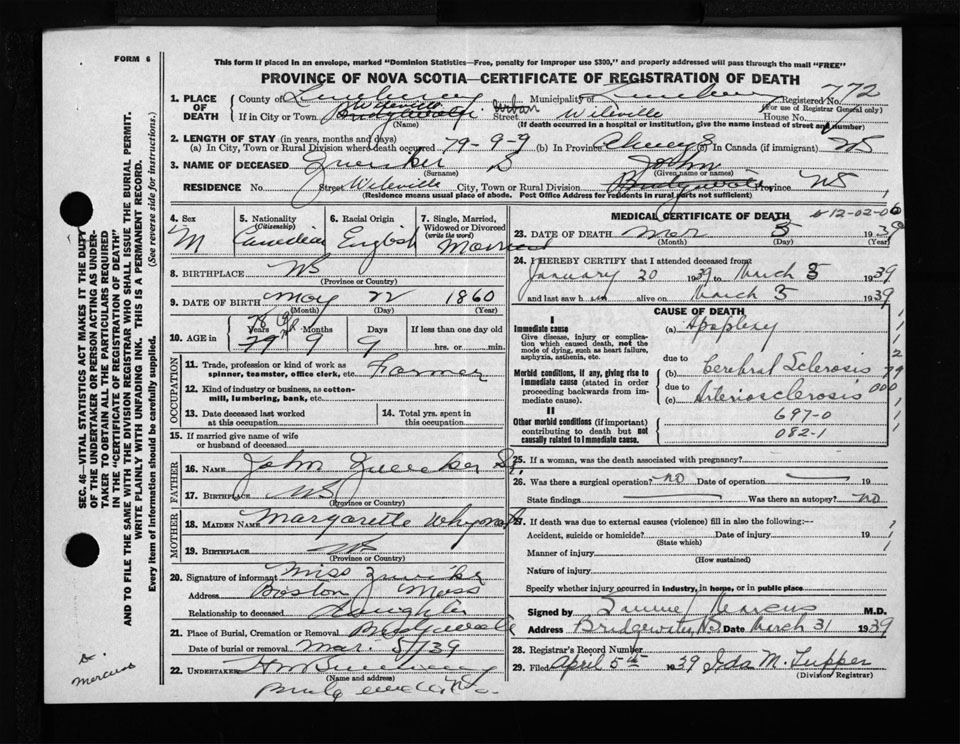 FORM 6
This form if placed in an envelope, marked "Dominion Statistics—Free, penalty for improper use $300," and properly addressed will pass through the mail "FREE"
PROVINCE OF NOVA SCOTIA—CERTIFICATE OF REGISTRATION OF DEATH
1. PLACE OF DEATH County of Lunenburg Municipality of Lunenburg Registered No. 772
(For use of Registrar General only)
If in City or Town Wileville Bridgewater Street Wileville House No.
(Name) (If death occurred in a hospital or institution, give the name instead of street and number)
2. LENGTH OF STAY (in years, months and days)
(a) In City, Town or Rural Division where death occurred 79-9-9 (b) In Province (c) In Canada (if immigrant) NS
3. NAME OF DECEASED Zwicker John
(Surname) (Given name or names)
RESIDENCE No. Street Wileville City, Town or Rural Division Bridgewater Province NS
(Residence means usual place of abode. Post Office Address for residents in rural parts not sufficient)
4. Sex M
5. Nationality (Citizenship) Canadian
6. Racial Origin English
7. Single, Married, Widowed or Divorced (write the word) Married
8. BIRTHPLACE NS
(Province or Country)
9. DATE OF BIRTH May 22 1860
(Month) (Day) (Year)
10. AGE in 78 Years Months Days If less than one day old
79 9 9 hrs. or min.
OCCUPATION
11. Trade, profession or kind of work as spinner, teamster, office clerk, etc. Farmer
12. Kind of industry or business, as cotton-mill, lumbering, bank, etc.
13. Date deceased last worked at this occupation
14. Total yrs. spent in this occupation
15. If married give name of wife or husband of deceased
FATHER
16. NAME John Zwicker Sr.
17. BIRTHPLACE NS
(Province or Country)
MOTHER
18. MAIDEN NAME Margarette Whynot
19. BIRTHPLACE NS
(Province or Country)
20. Signature of informant Miss Zwicker
Address Boston Mass
Relationship to deceased Daughter
21. Place of Burial, Cremation or Removal Bridgewater
Date of burial or removal Mar. 5/39
22. UNDERTAKER
(Name and address)
Bridgewater N.S.
MEDICAL CERTIFICATE OF DEATH 12-02-06
23. DATE OF DEATH Mar 3 1939
(Month) (Day) (Year)
24. I HEREBY CERTIFY that I attended deceased from
January 20 1939 to March 3 1939
and last saw him alive on March 3 1939
CAUSE OF DEATH
I
Immediate cause (a) Apoplexy
Give disease, injury or complication which caused death, not the mode of dying, such as heart failure, asphyxia, asthenia, etc.
due to
Morbid conditions, if any, giving rise to immediate cause (stated in order proceeding backwards from immediate cause). (b) Cerebral Sclerosis 79
due to
(c) Arteriosclerosis 000
II
Other morbid conditions (if important) contributing to death but not causally related to immediate cause.
697-0
082-1
25. If a woman, was the death associated with pregnancy?
26. Was there a surgical operation? no Date of operation 19
State findings Was there an autopsy? no
27. If death was due to external causes (violence) fill in also the following:—
Accident, suicide or homicide? Date of injury 19
(State which)
Manner of injury
(How sustained)
Nature of injury
Specify whether injury occurred in industry, in home, or in public place
Signed by Marcus M.D.
Address Bridgewater, NS Date March 31 1939
28. Registrar's Record Number
29. Filed April 5th 1939 Ida M. Tupper
(Division Registrar)
SEC. 46—VITAL STATISTICS ACT MAKES IT THE DUTY OF THE UNDERTAKER OR PERSON ACTING AS UNDERTAKER TO OBTAIN ALL THE PARTICULARS REQUIRED IN THE "CERTIFICATE OF REGISTRATION OF DEATH" AND TO FILE THE SAME WITH THE DIVISION REGISTRAR WHO SHALL ISSUE THE BURIAL PERMIT.
WRITE PLAINLY WITH UNFADING INK. THIS IS A PERMANENT RECORD.
Every item of information should be carefully supplied. (See reverse side for instructions.)
Dr. Marcus